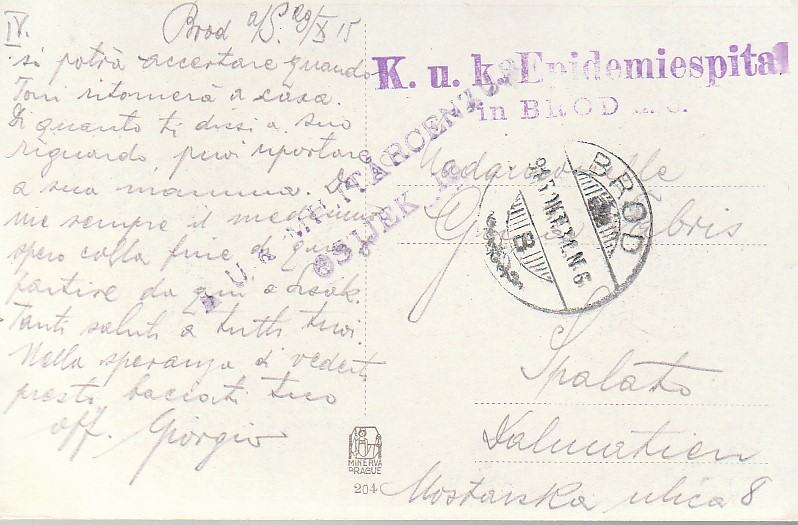 IV.
Brod a/S. 29/X 15
si potrà accertare quando
Toni ritornerà a casa.
Di quanto ti dissi a suo
riguardo, puoi riportare
a sua mamma. Di
me sempre il medesimo
spero colla fine di
partire da qui a Osiek.
Tanti saluti a tutti tuoi.
Nella speranza di vederti
presto baciati tuo
aff. Giorgio
K. u. k. Epidemiespital
in BROD
K. U. K. MILITÄRCENSUR
OSIJEK
BROD
B
Madamoiselle
Spalato
Dalmatien
Mostarska ulica 8
MINERVA
PRAGUE
204